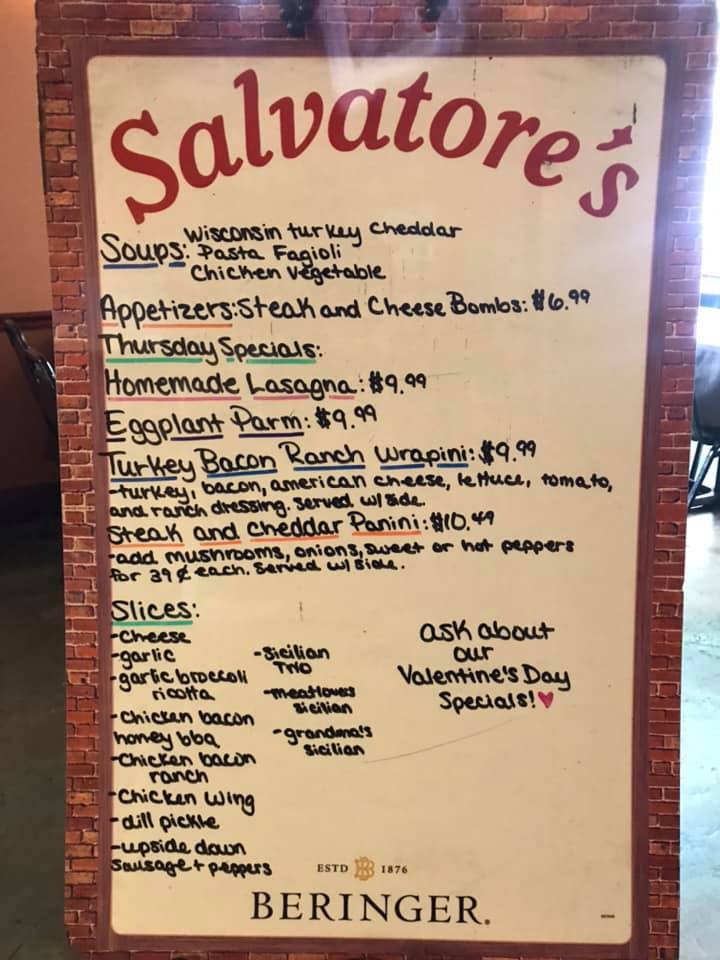 Salvatore's
Soups: Wisconsin turkey Cheddar
Pasta Fagioli
Chicken Vegetable
Appetizers: Steak and Cheese Bombs: $6.99
Thursday Specials:
Homemade Lasagna: $9.99
Eggplant Parm: $9.99
Turkey Bacon Ranch Wrapini: $9.99
-turkey, bacon, american cheese, lettuce, tomato,
and ranch dressing. Served w/ side.
Steak and Cheddar Panini: $10.49
-add mushrooms, onions, sweet or hot peppers
for 39¢ each. Served w/ side.
Slices:
-Cheese
-garlic
-garlic broccoli
ricotta
-Chicken bacon
honey bbq
-Chicken bacon
ranch
-Chicken Wing
-dill pickle
-upside down
Sausage + peppers
-Sicilian
TWO
-meatlovers
Sicilian
-grandma's
Sicilian
ask about
our
Valentine's Day
Specials!♥
ESTD BB 1876
BERINGER.